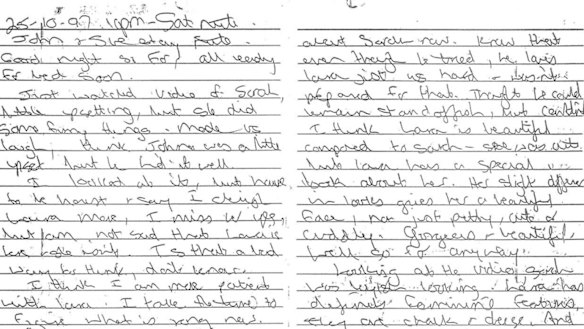 25-10-97 10pm - Sat nite.
John & Sue stay
Good night so far, all ready
for bed soon.
Just watched video of Sarah,
little upsetting, but she did
some funny things - made us
laugh, I think John was a little
upset but he hid it well.
I looked at it, but have
to be honest & say I
Laura more, I miss
but am not sad that Laura is
here Is that a bad
way to think, don't know.
I think I am more patient
with Laura I take the time to
figure what is wrong now.
about Sarah now. Knew that
even though he tried, he
Laura just as hard &
prepared for that. Thought he could
remain standoffish, but couldn't
I think Laura is beautiful
compared to Sarah - she was cute
but Laura has a special
look about her. Her slight difference
in looks gives her a beautiful
face, not just pretty, cute or
cuddly. Gorgeous & beautiful,
well so far anyway.
Looking at the video Sarah
was looking. Laura has
definite feminine features
they are chalk & cheese. And